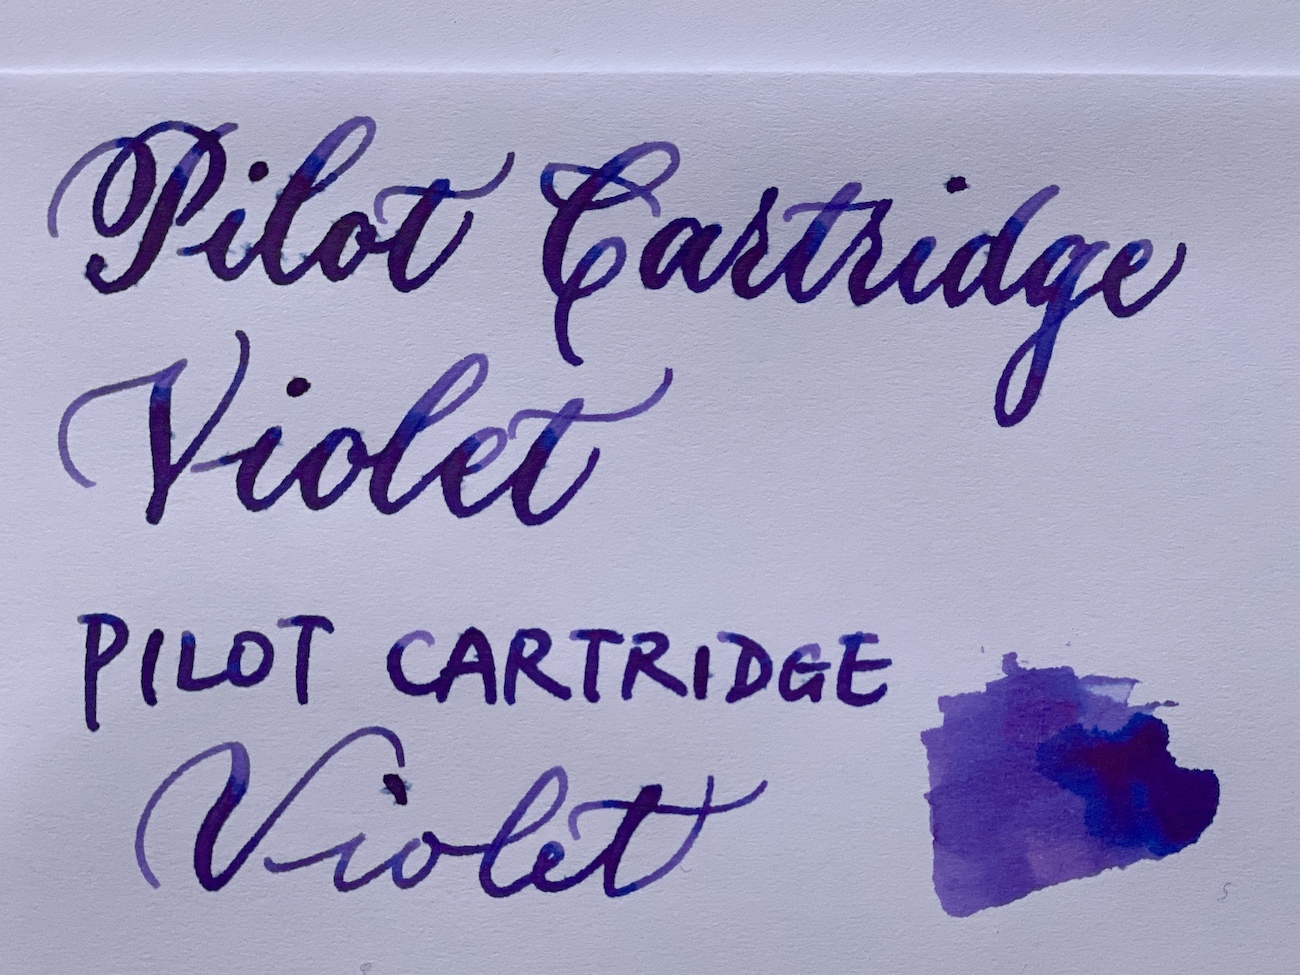 Pilot Cartridge
Violet
PILOT CARTRIDGE
Violet